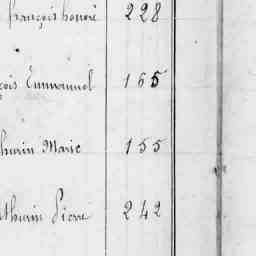 françois honoré 228
çois Emmanuel 165
hurin Marie 155
thurin Pierre 242